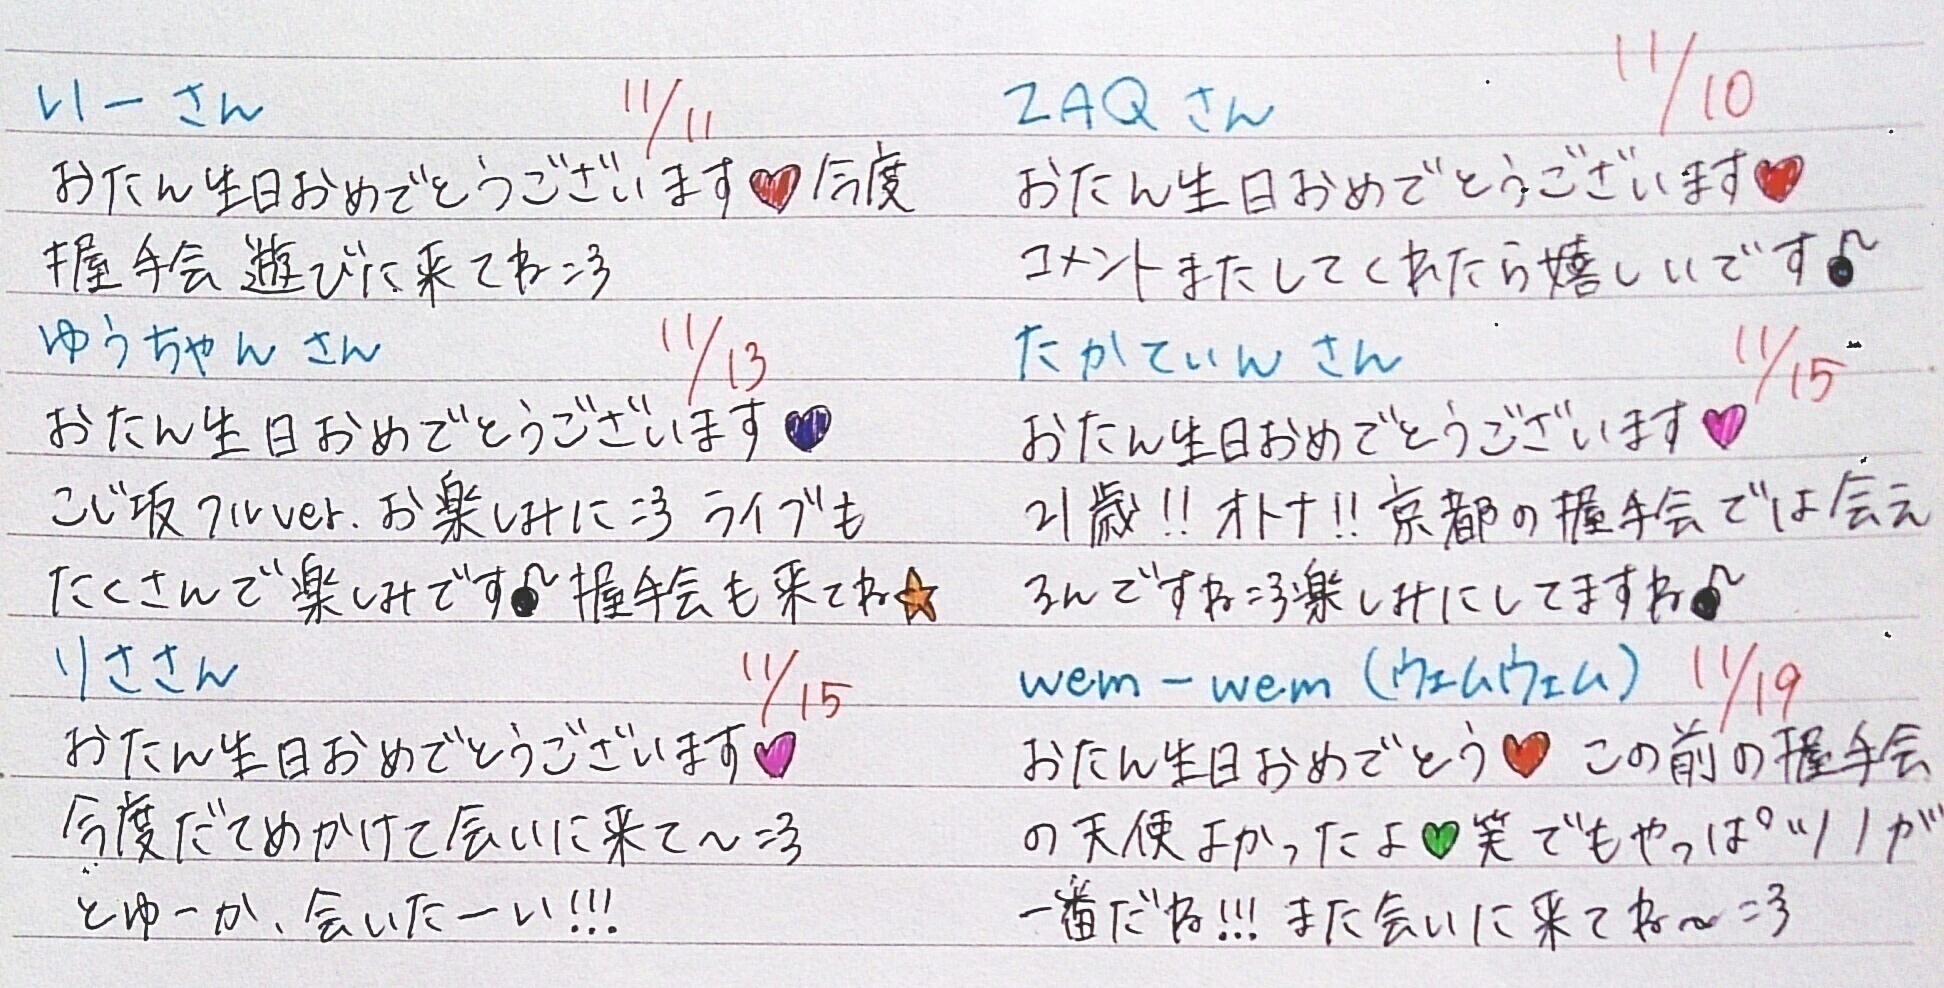 いーさん 11/11
おたん生日おめでとうございます♥今度
握手会遊びに来てね=3
ゆうちゃんさん 11/13
おたん生日おめでとうございます♥
こじ坂フルver.お楽しみに=3 ライブも
たくさんで楽しみです♪握手会も来てね★
りささん 11/15
おたん生日おめでとうございます♥
今度だてめかけて会いに来て〜=3
とゆーか、会いたーい!!!
ZAQさん 11/10
おたん生日おめでとうございます♥
コメントまたしてくれたら嬉しいです♪
たかてぃんさん 11/15
おたん生日おめでとうございます♥
21歳!!オトナ!!京都の握手会では会え
るんですね=3楽しみにしてますね♪
wem-wem(ウェムウェム) 11/19
おたん生日おめでとう♥ この前の握手会
の天使よかったよ♥笑でもやっぱツノが
一番だね!!!また会いに来てね〜=3